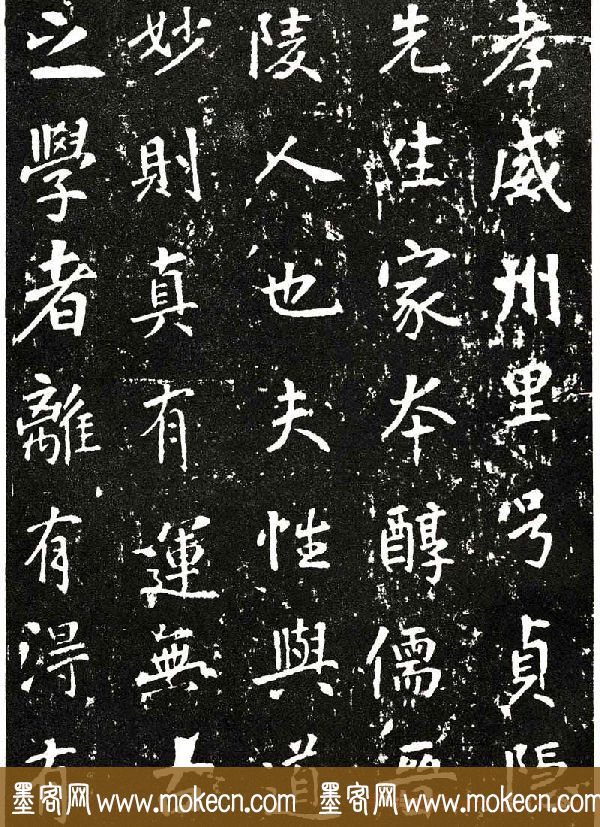 孝威州里号貞隱
先生家本醇儒
陵人也夫性與道
妙則真有運無
之學者離有得
墨客网 www.mokecn.com 墨客网 www.mokecn.com